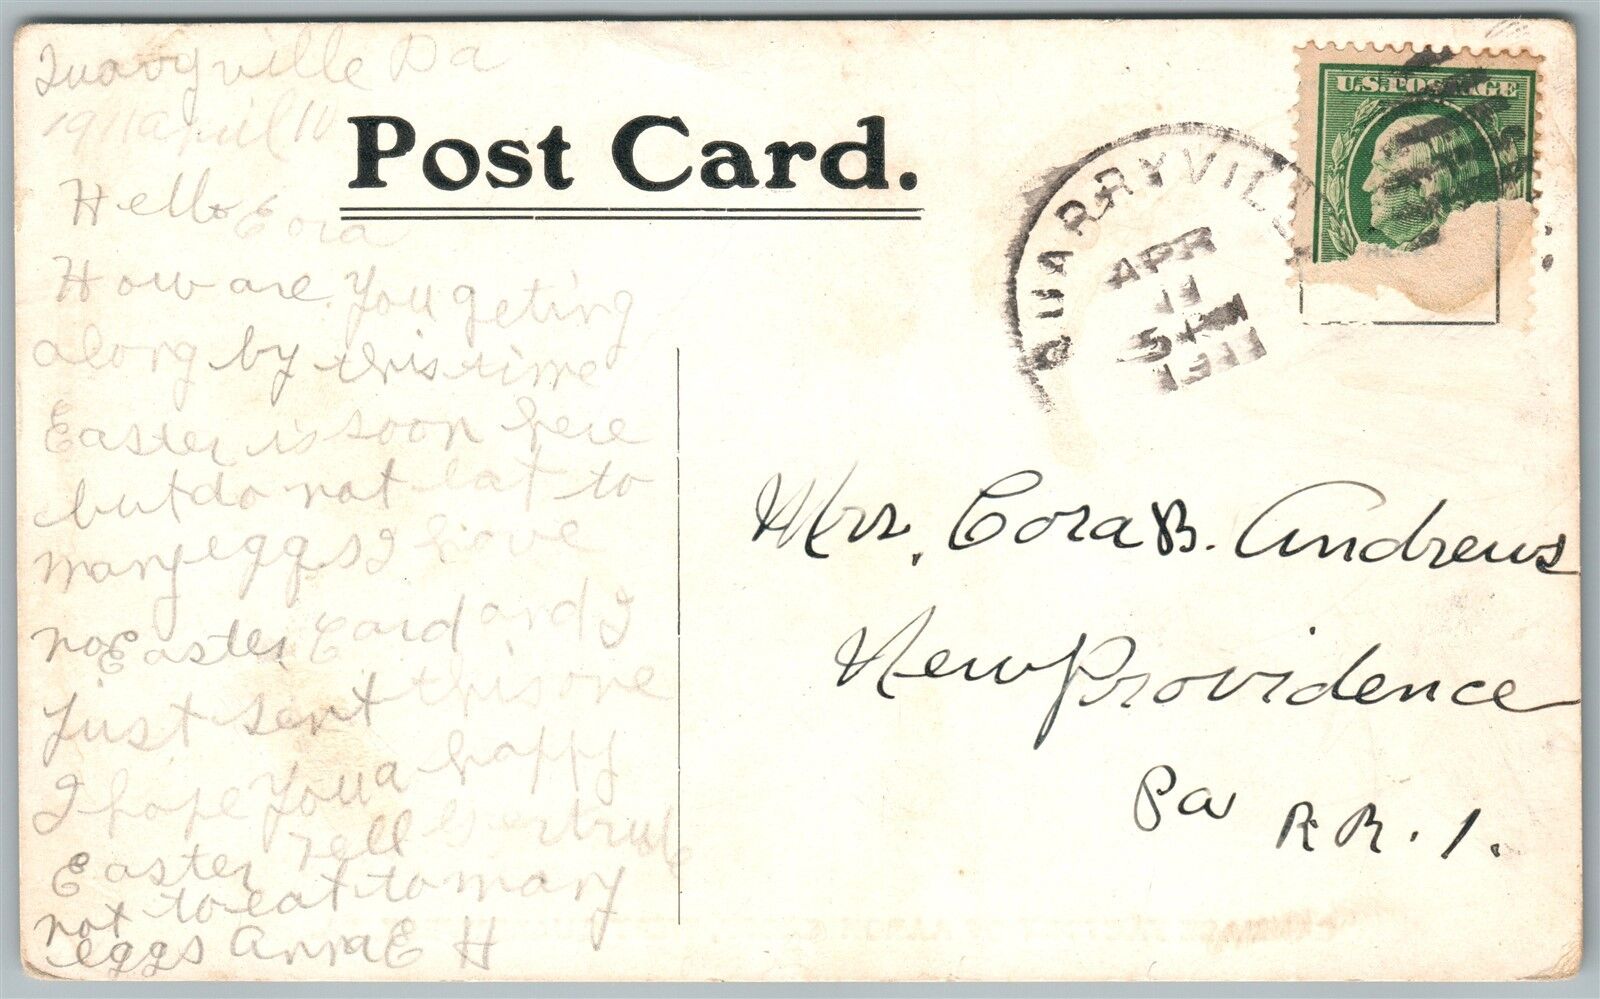 Quarryville Pa
1911 April 10
Hello Cora
How are you geting
along by this time
Easter is soon here
but do not eat to
many eggs I have
no Easter Card and I
just sent this one
I hope you a happy
Easter Tell Gertrude
not to eat to many
eggs Anna E H
Post Card.
QUARRYVILLE
APR
11
1911
U.S. POSTAGE
Mrs. Cora B. Andrews
New Providence
Pa R R. 1.